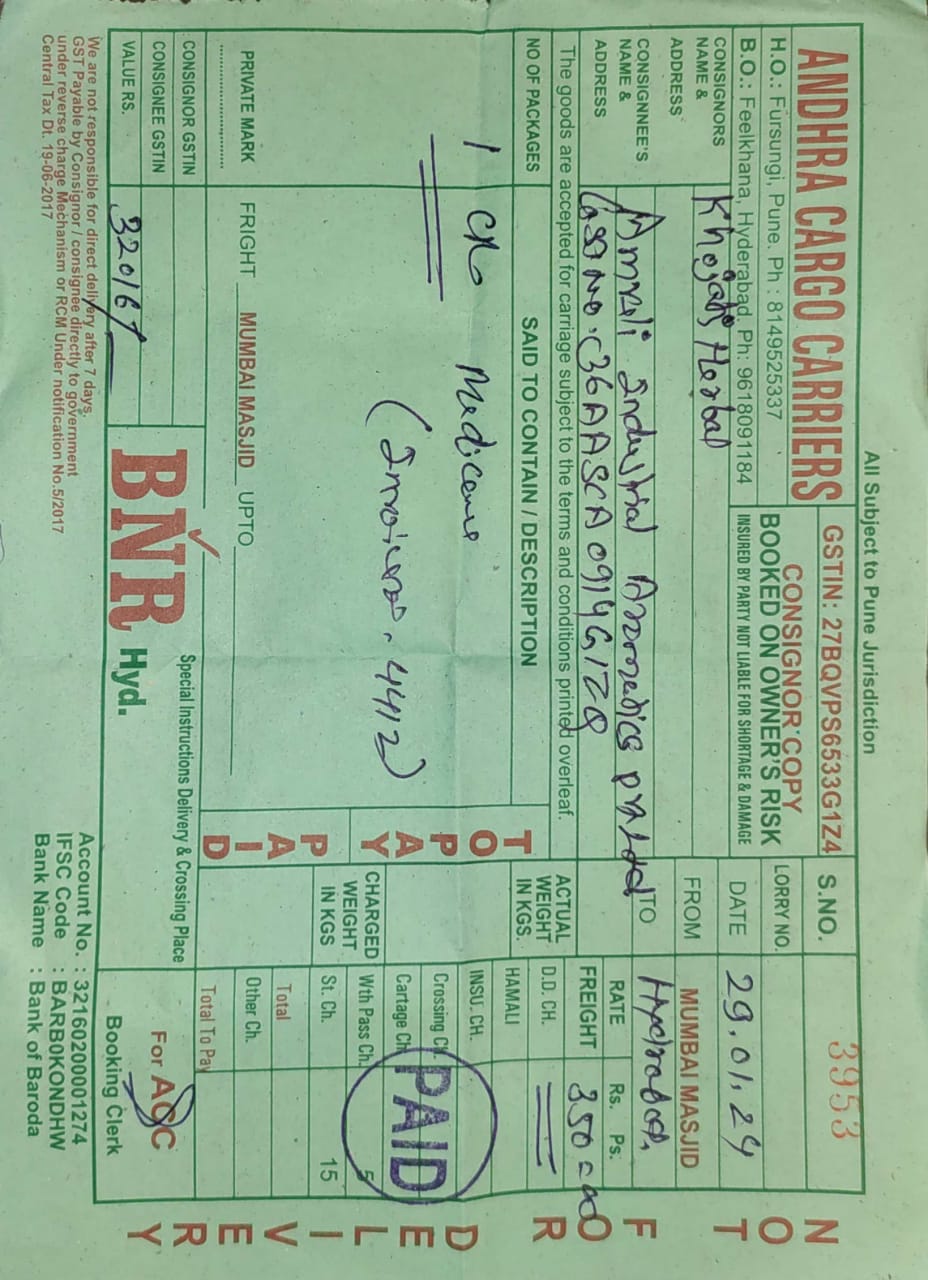 All Subject to Pune Jurisdiction
ANDHRA CARGO CARRIERS
H.O.: Fursungi, Pune. Ph : 8149525337
B.O.: Feelkhana, Hyderabad, Ph: 9618091184
GSTIN: 27BQVPS6533G1Z4
CONSIGNOR COPY
BOOKED ON OWNER'S RISK
INSURED BY PARTY NOT LIABLE FOR SHORTAGE & DAMAGE
S.NO. 3953
LORRY NO.
DATE 29.01.24
CONSIGNORS NAME & ADDRESS Khojati Herbal
FROM MUMBAI MASJID
CONSIGNNEE'S NAME & ADDRESS Amrali Industrial Aromatics
TO
The goods are accepted for carriage subject to the terms and conditions printed overleaf.
NO OF PACKAGES
SAID TO CONTAIN / DESCRIPTION
ACTUAL WEIGHT IN KGS.
RATE Rs. Ps.
1
Medicine
4412)
TO PAY
PAID
CHARGED WEIGHT IN KGS
FREIGHT 350
D.D. CH.
HAMALI
INSU. CH.
Crossing Ch.
Cartage Ch.
Wth Pass Ch. 5
St. Ch. 15
Total
Other Ch.
Total To Pay
PAID
PRIVATE MARK
FRIGHT MUMBAI MASJID UPTO
CONSIGNOR GSTIN
CONSIGNEE GSTIN
VALUE RS. 32016/-
BNR Hyd.
Special Instructions Delivery & Crossing Place
For ACC
Booking Clerk
We are not responsible for direct delivery after 7 days.
GST Payable by Consignor / consignee directly to government
under reverse charge Mechanism or RCM Under notification No.5/2017
Central Tax Dt. 19-06-2017
Account No. : 32160200001274
IFSC Code : BARB0KONDHW
Bank Name : Bank of Baroda
NOT FOR DELIVERY